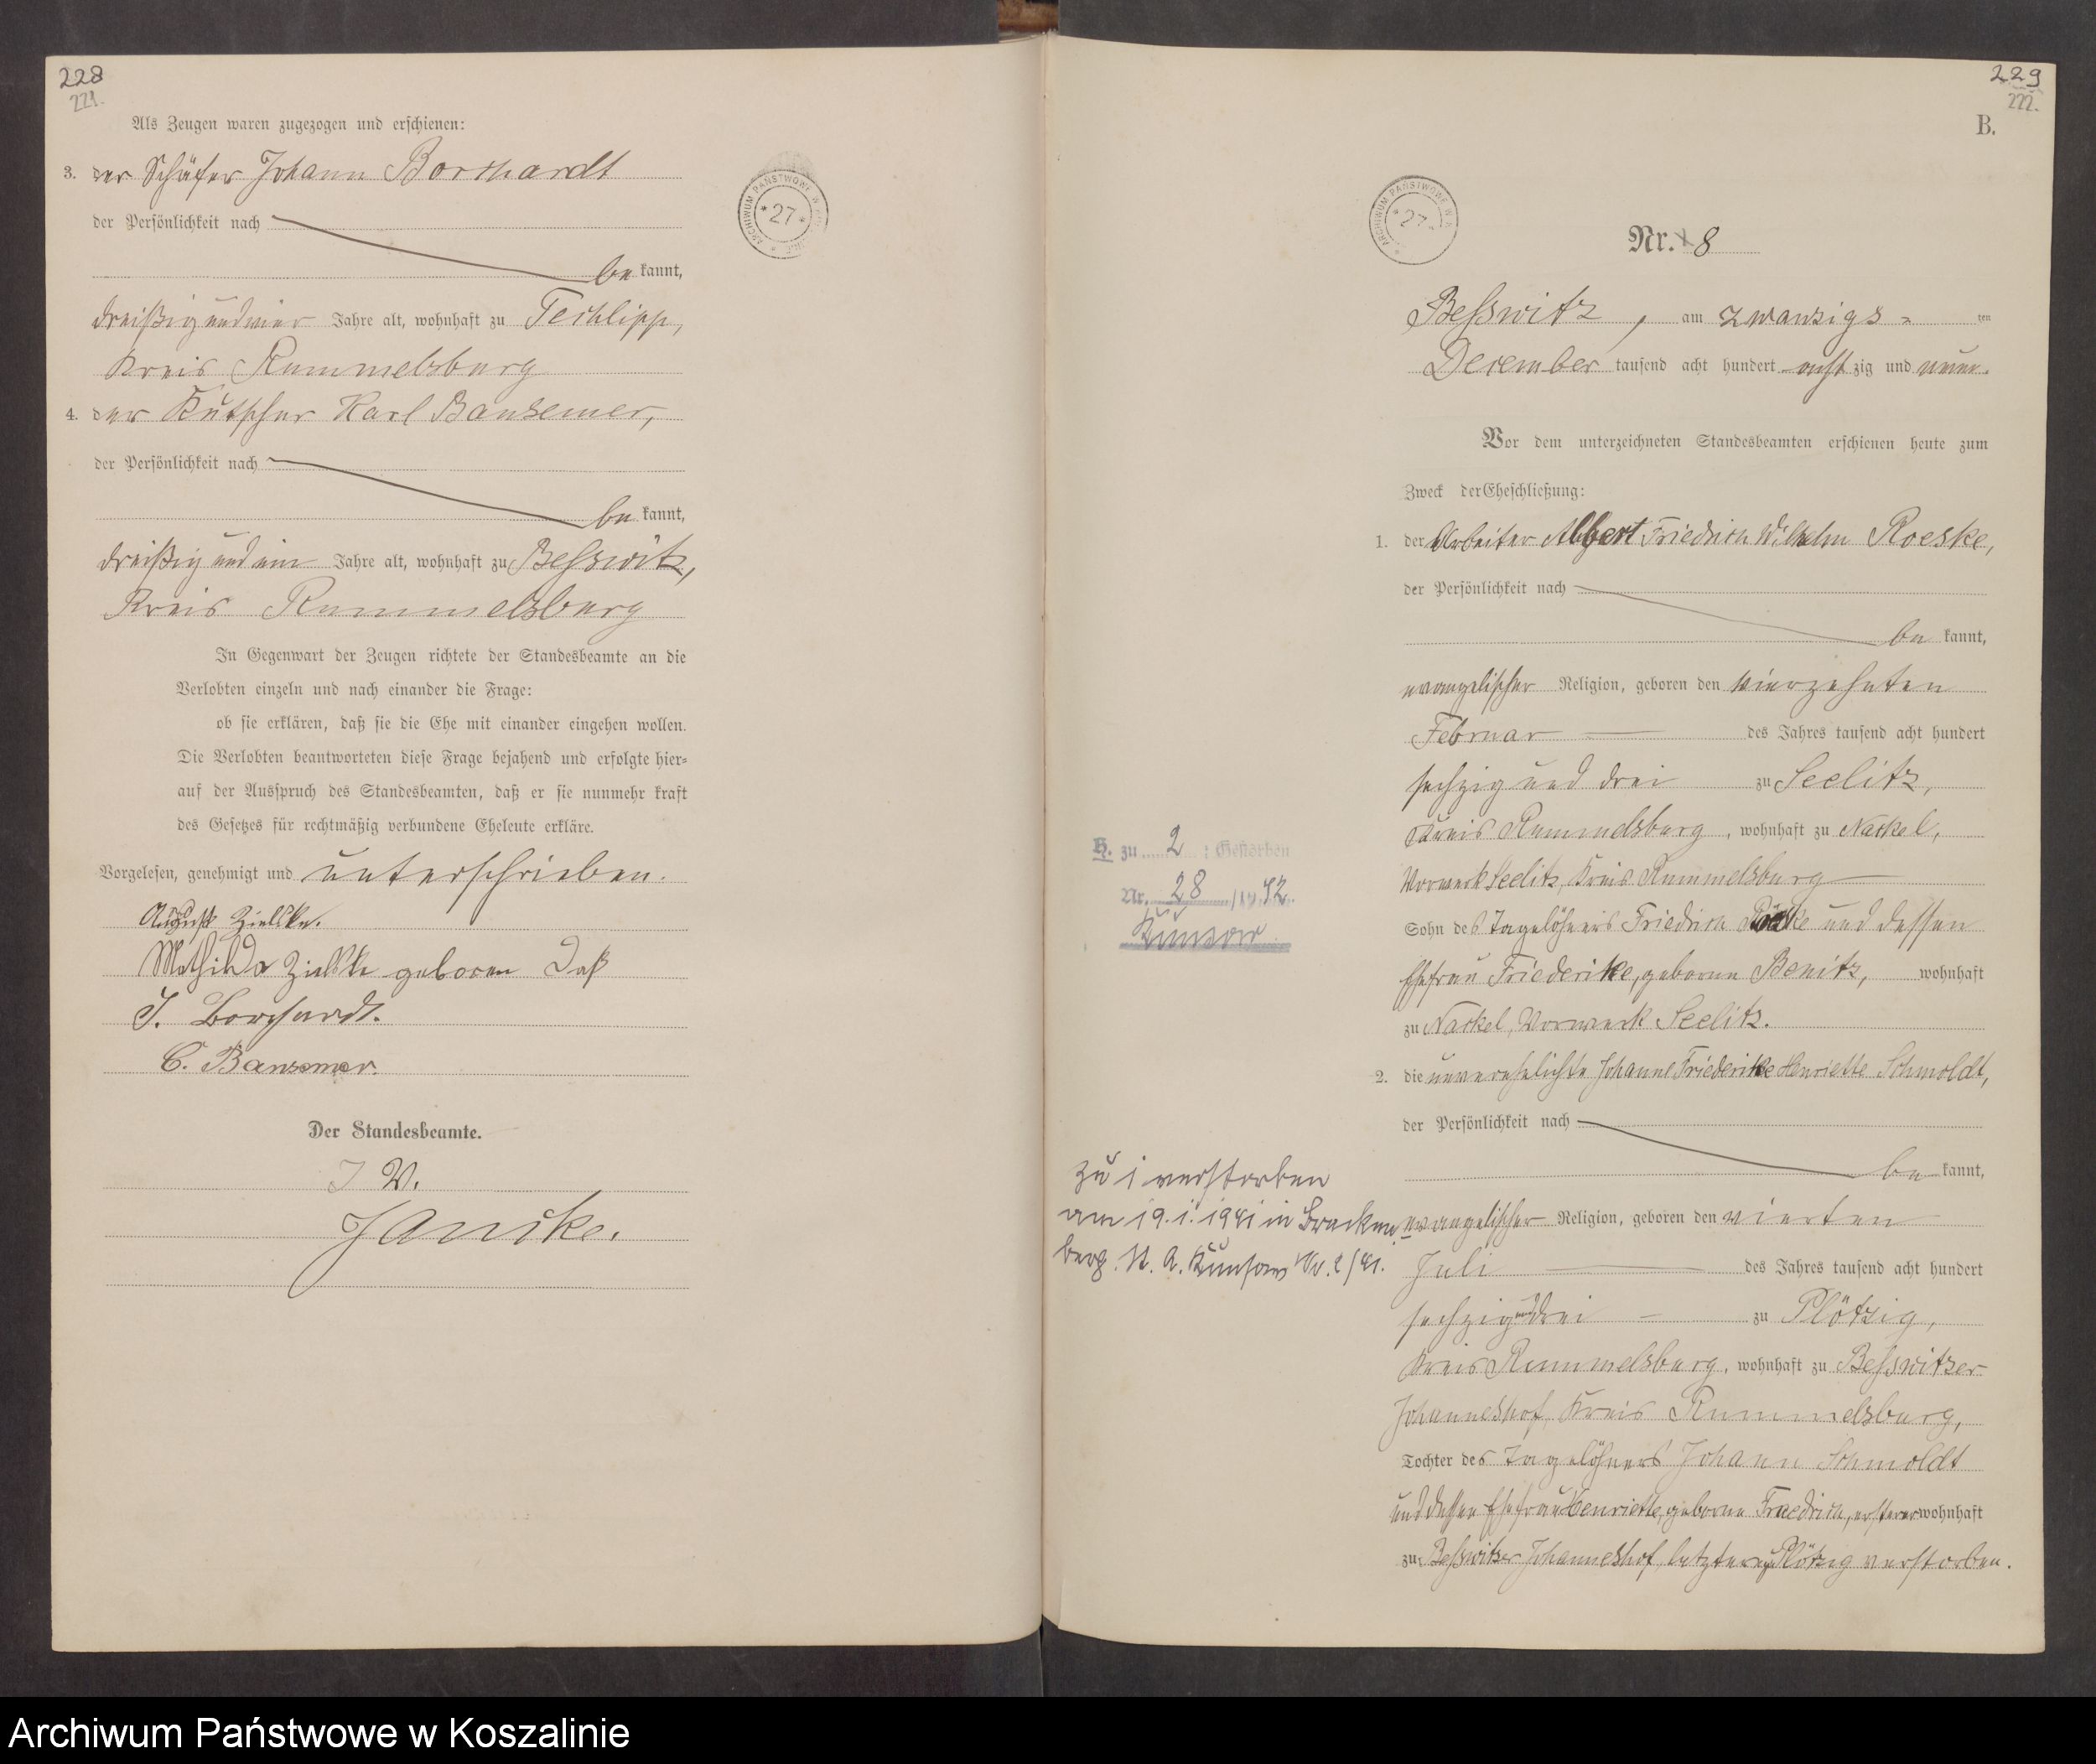 228
221.
Als Zeugen waren zugezogen und erschienen:
3. der Schäfer Johann Borchardt
der Persönlichkeit nach
be kannt,
dreißig und vier Jahre alt, wohnhaft zu Techlipp,
Kreis Rummelsburg
4. der Kutscher Karl Banzemer,
der Persönlichkeit nach
be kannt,
dreißig und ein Jahre alt, wohnhaft zu Besswitz,
Kreis Rummelsburg
In Gegenwart der Zeugen richtete der Standesbeamte an die
Verlobten einzeln und nach einander die Frage:
ob sie erklären, daß sie die Ehe mit einander eingehen wollen.
Die Verlobten beantworteten diese Frage bejahend und erfolgte hier-
auf der Ausspruch des Standesbeamten, daß er sie nunmehr kraft
des Gesetzes für rechtmäßig verbundene Eheleute erkläre.
Vorgelesen, genehmigt und unterschrieben.
August Zielske.
Mathilda Zielske geboren
J. Borchardt.
C. Banzemer.
Der Standesbeamte.
J V.
Janike.
ARCHIWUM PAŃSTWOWE W
* 27 *
229
222.
B.
ARCHIWUM PAŃSTWOWE W
* 27 *
Nr. 8
Besswitz, am zwanzigs- ten
December tausend acht hundert acht zig und neun.
Vor dem unterzeichneten Standesbeamten erschienen heute zum
Zweck der Eheschließung:
1. der Arbeiter Albert Friedrich Wilhelm Roeske,
der Persönlichkeit nach
be kannt,
evangelischer Religion, geboren den vierzehnten
Februar des Jahres tausend acht hundert
sechzig und drei zu Seelitz,
Kreis Rummelsburg, wohnhaft zu Nackel,
Vorwerk Seelitz, Kreis Rummelsburg
Sohn des Tagelöhners Friedrich Röske und dessen
Ehefrau Friederike, geborne Benitz, wohnhaft
zu Nackel, Vorwerk Seelitz.
2. die unverehelichte Johanne Friederike Henriette Schmoldt,
der Persönlichkeit nach
be kannt,
evangelischer Religion, geboren den vierten
Juli des Jahres tausend acht hundert
sechzig und drei zu Plötzig,
Kreis Rummelsburg, wohnhaft zu Besswitzer
Johanneshof, Kreis Rummelsburg,
Tochter des Tagelöhners Johann Schmoldt
und dessen Ehefrau Henriette, geborne Friedrich, ersterer wohnhaft
zu Besswitzer Johanneshof, letztere zu Plötzig verstorben.
H. zu 2 : Gestorben
Nr. 28 /1942
Kunsow
Zu 1 verstorben
am 19.1.1941 in
berg. St. A. Kunsow Nr. 2/41.
Archiwum Państwowe w Koszalinie